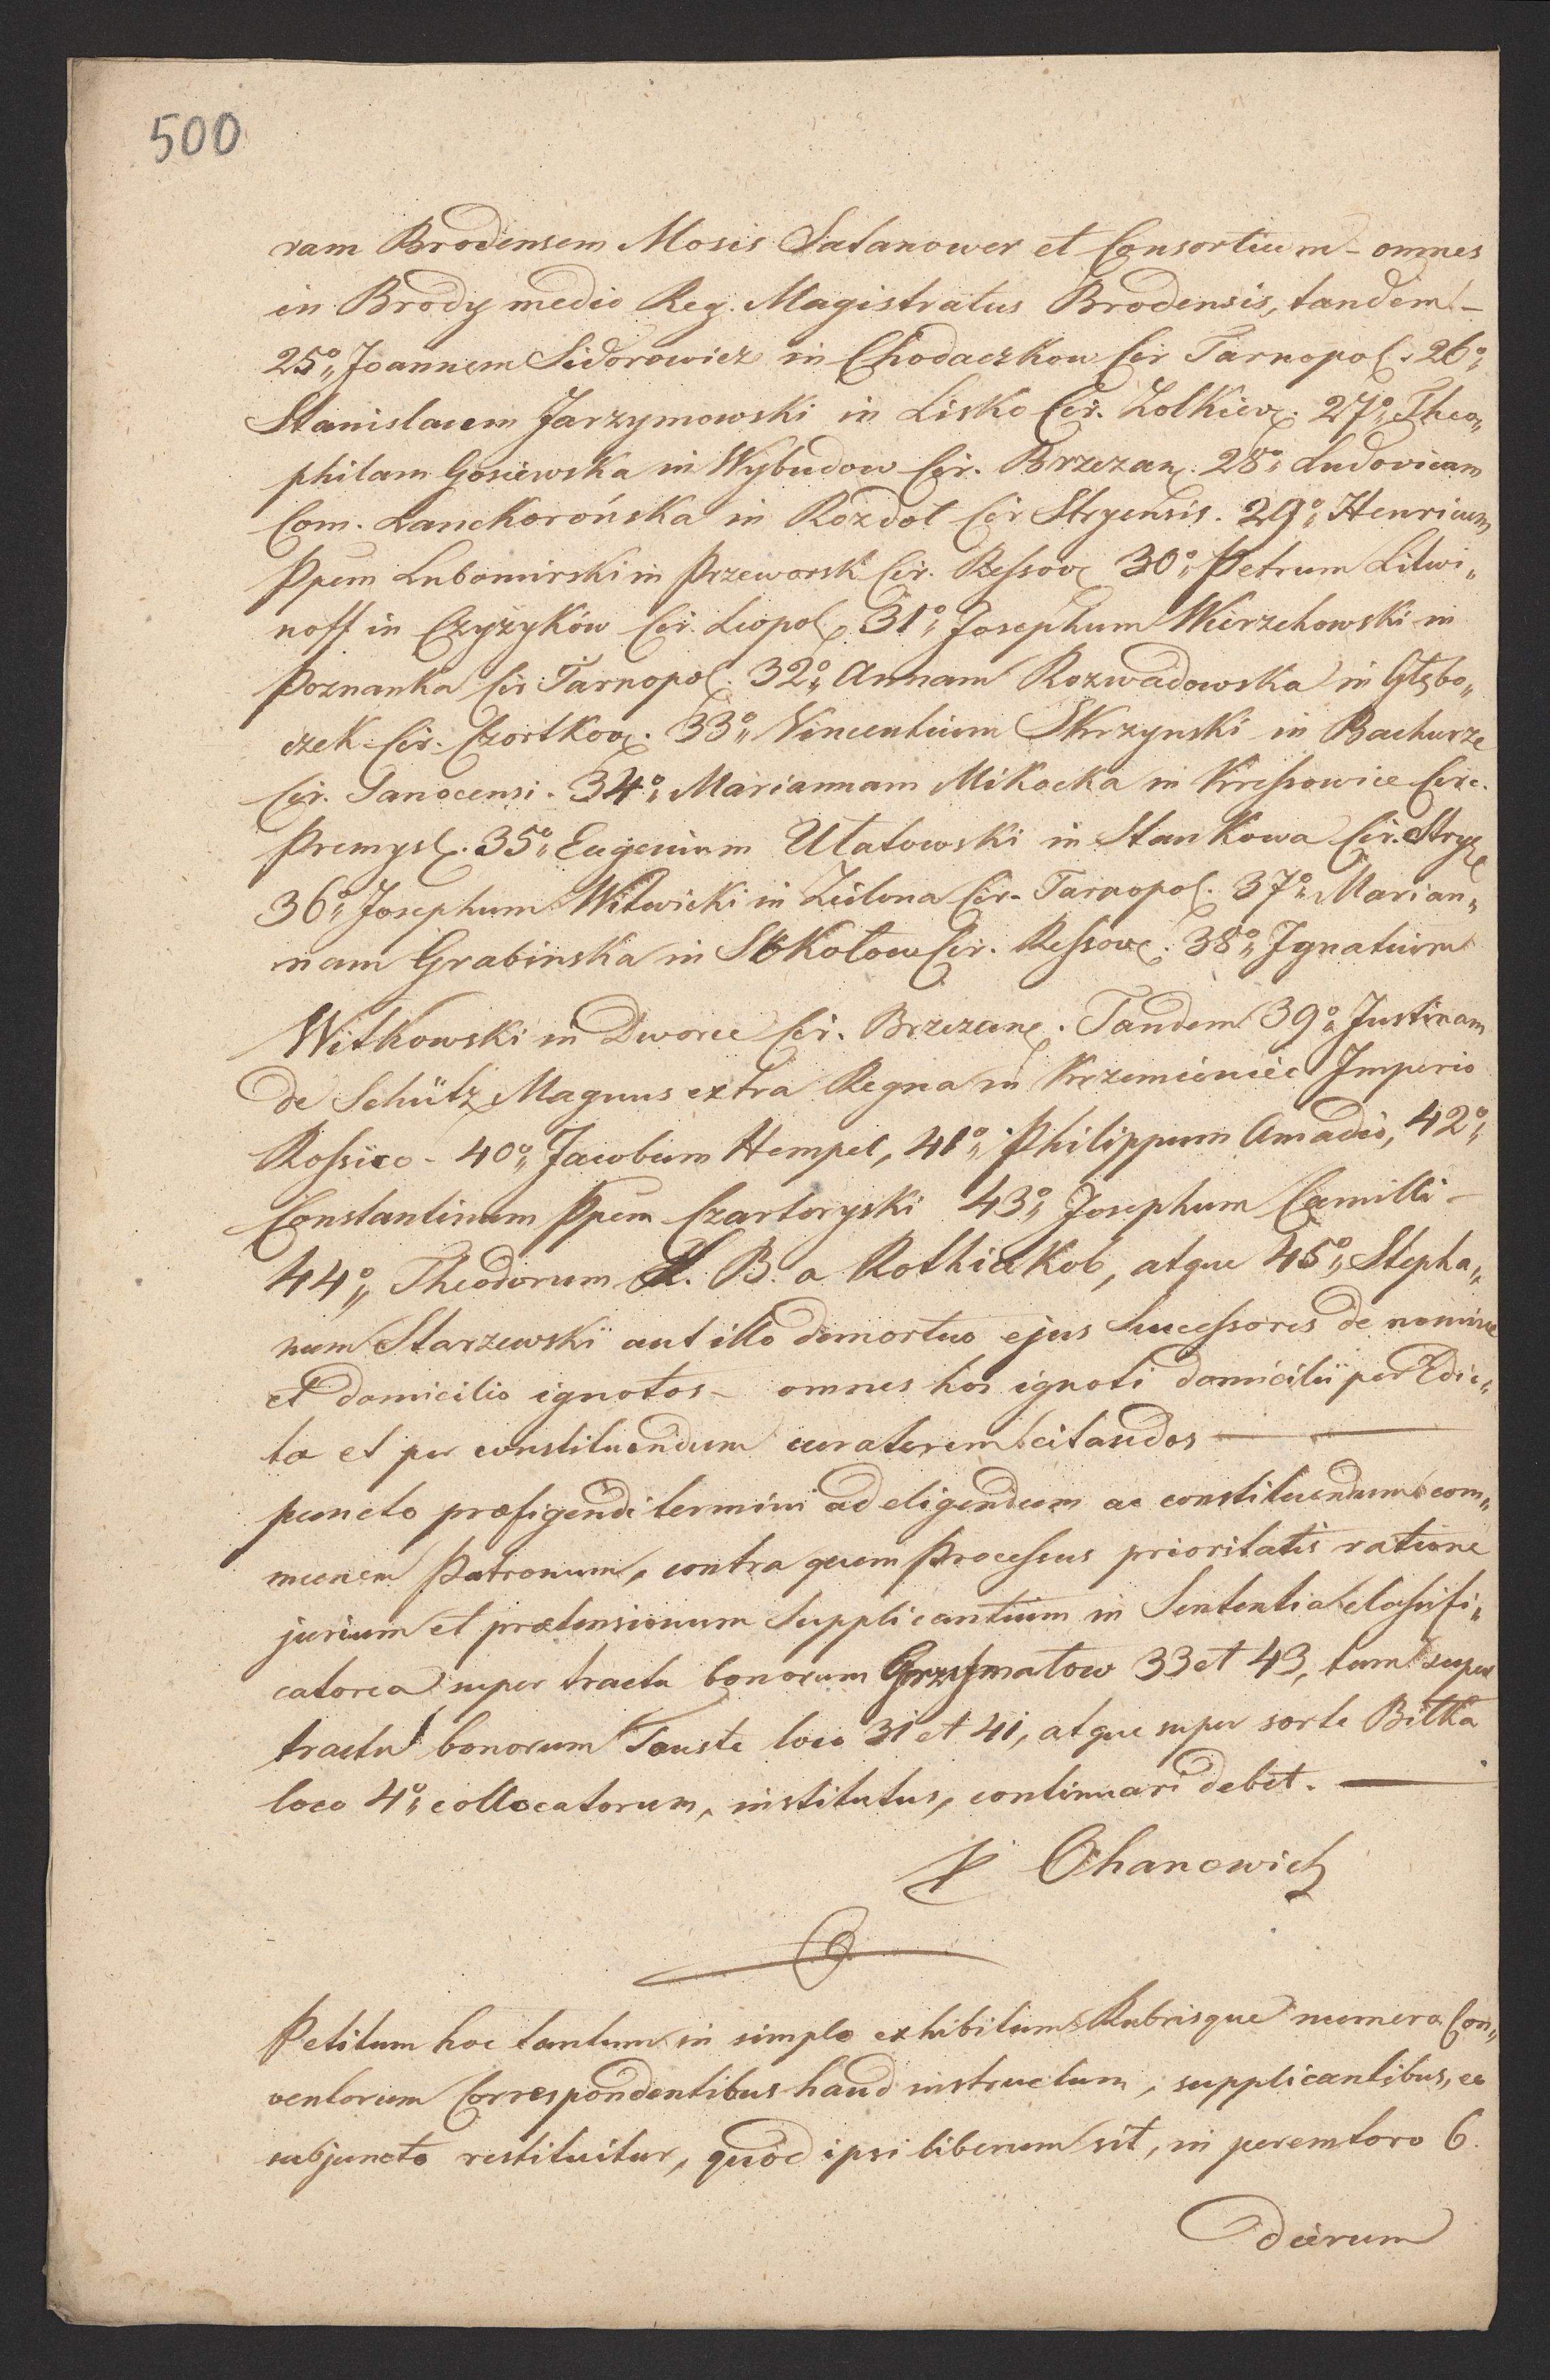 500
ram Brodensem Mosis Satanower et Consortium – omnes
in Brody medio Reg. Magistratus Brodensis, tandem –
25º„ Joannem Sidorowicz in Chodaczkow Cir Tarnopol. 26º„
Stanislaum Jarzymowski in Lisko Cir. Zolkiev. 27º„ Theo„
philam Gosiewska in Wybudow Cir. Brzezan. 28º„ Ludovicam
Com. Lanckorońska in Rozdol Cir Stryensis. 29º„ Henricum
Ppem Lubomirski in Przeworsk Cir. Ressov. 30º„ Petrum Litwi„
noff in Czyzyków Cir. Leopol. 31º„ Josephum Wierzchowski in
Poznanka Cir Tarnopol. 32º„ Annam Rozwadowska in Głębo„
czek Cir. Czortkov. 33º„ Vincentium Skrzynski in Bachurze
Cir. Sanocensi. 34º„ Mariannam Mikocka in Kressowice Circ.
Premysl. 35º„ Eugenium Ulatowski in Stankowa Cir. Stryz
36º„ Josephum Witwicki in Zielona Cir. Tarnopol. 37º„ Marian„
nam Grabinska in Sokołow Cir. Ressov. 38º„ Ignatium
Witkowski in Dworce Cir. Brzezan. Tandem 39º„ Justinam
de Schütz Magnus extra Regna in Krzemieniec Imperio
Rossico – 40º„ Jacobum Hempel, 41º„ Philippum Amadio, 42º„
Constantinum Ppem Czartoryski 43º„ Josephum Camilli –
44º„ Theodorum L. B. a Rothiakob, atque 45º„ Stepha„
num Starzewski aut illo demortuo ejus Successores de nomine
et domicilio ignotos – omnes hos ignoti domicilii per Edic„
ta et per constituendum curatorem citandos
puncto præfigendi termini ad eligendum ac constituendum com„
munem Patronum, contra quem Processus prioritatis ratione
jurium et prætensionum Supplicantium in Sententia classifi„
catorea super tractu bonorum Grzymałow 33 et 43, tum super
tractu bonorum Touste loco 31 et 41, atque super sorte Bitka
loco 4º„ collocatorum, institutus, continuari debet.
Ohanowich
Petitum hoc tantum in simplo exhibitum Rubrisque numero Con„
ventorum Correspondentibus haud instructum, supplicantibus, eo
subjuncto restituitur, quod ipsi liberum sit, in peremtoro 6.
dierum